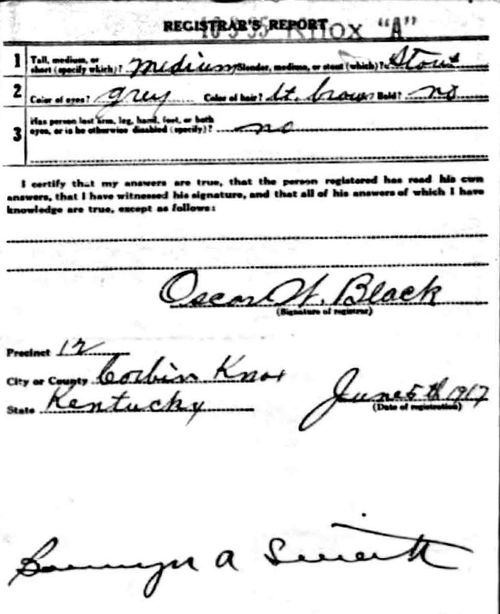 REGISTRAR'S REPORT
Knox "A"
1 Tall, medium, or short (specify which)? medium Slender, medium, or stout (which)? Stout
2 Color of eyes? grey Color of hair? Lt. brown Bald? no
3 Has person lost arm, leg, hand, foot, or both eyes, or is he otherwise disabled (specify)? no
I certify that my answers are true, that the person registered has read his own
answers, that I have witnessed his signature, and that all of his answers of which I have
knowledge are true, except as follows:
Oscar W. Black
(Signature of registrar)
Precinct 12
City or County Corbin Knox
State Kentucky
June 5th 1917
(Date of registration)
A Smith